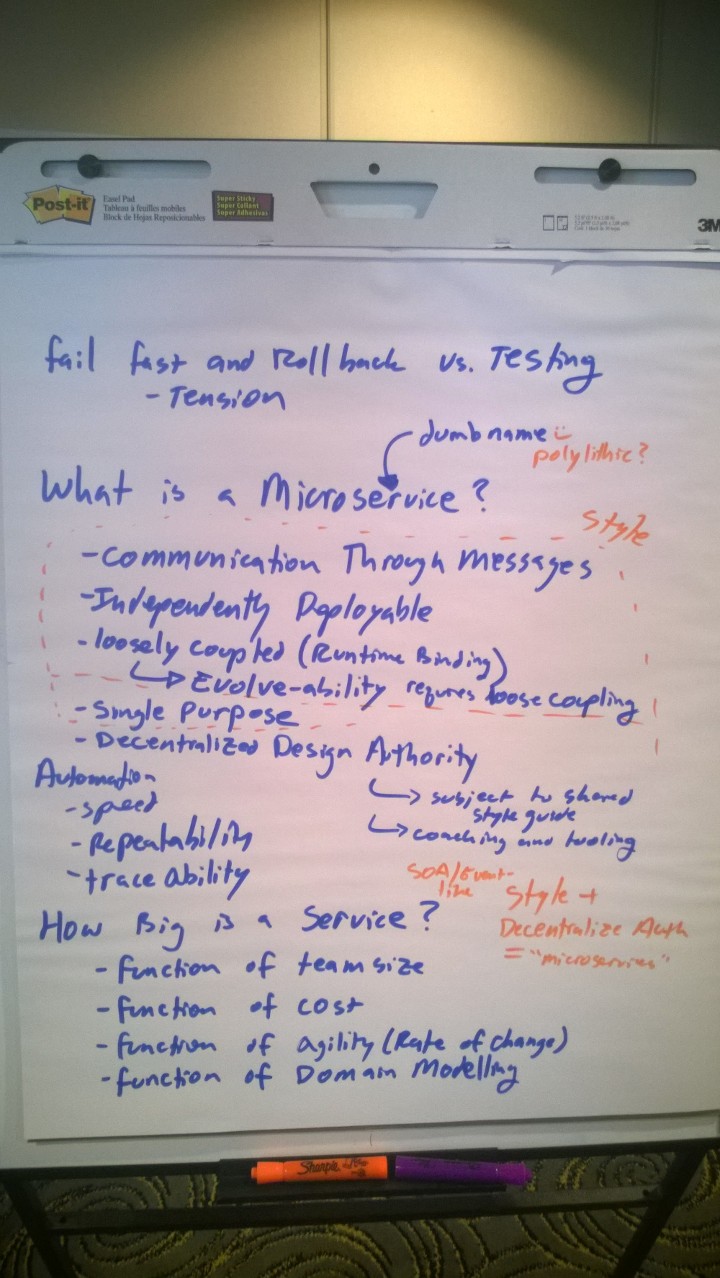 Post-it
Easel Pad
Tableau à feuilles mobiles
Block de Hojas Reposicionables
Super Sticky
Super Collant
Super Adhesivas
3M
fail fast and Rollback vs. Testing
- Tension
dumb name :)
polylithic?
What is a Microservice?
Style
- Communication Through Messages
- Independently Deployable
- loosely coupled (Runtime Binding)
Evolve-ability requires loose coupling
- Single Purpose
- Decentralized Design Authority
subject to shared
style guide
coaching and tooling
Automation
- speed
- Repeatability
- trace ability
SOA/Event-
like
Style +
Decentralize Auth
= "microservices"
How Big is a Service?
- function of team size
- function of cost
- function of agility (Rate of change)
- function of Domain Modelling
Sharpie